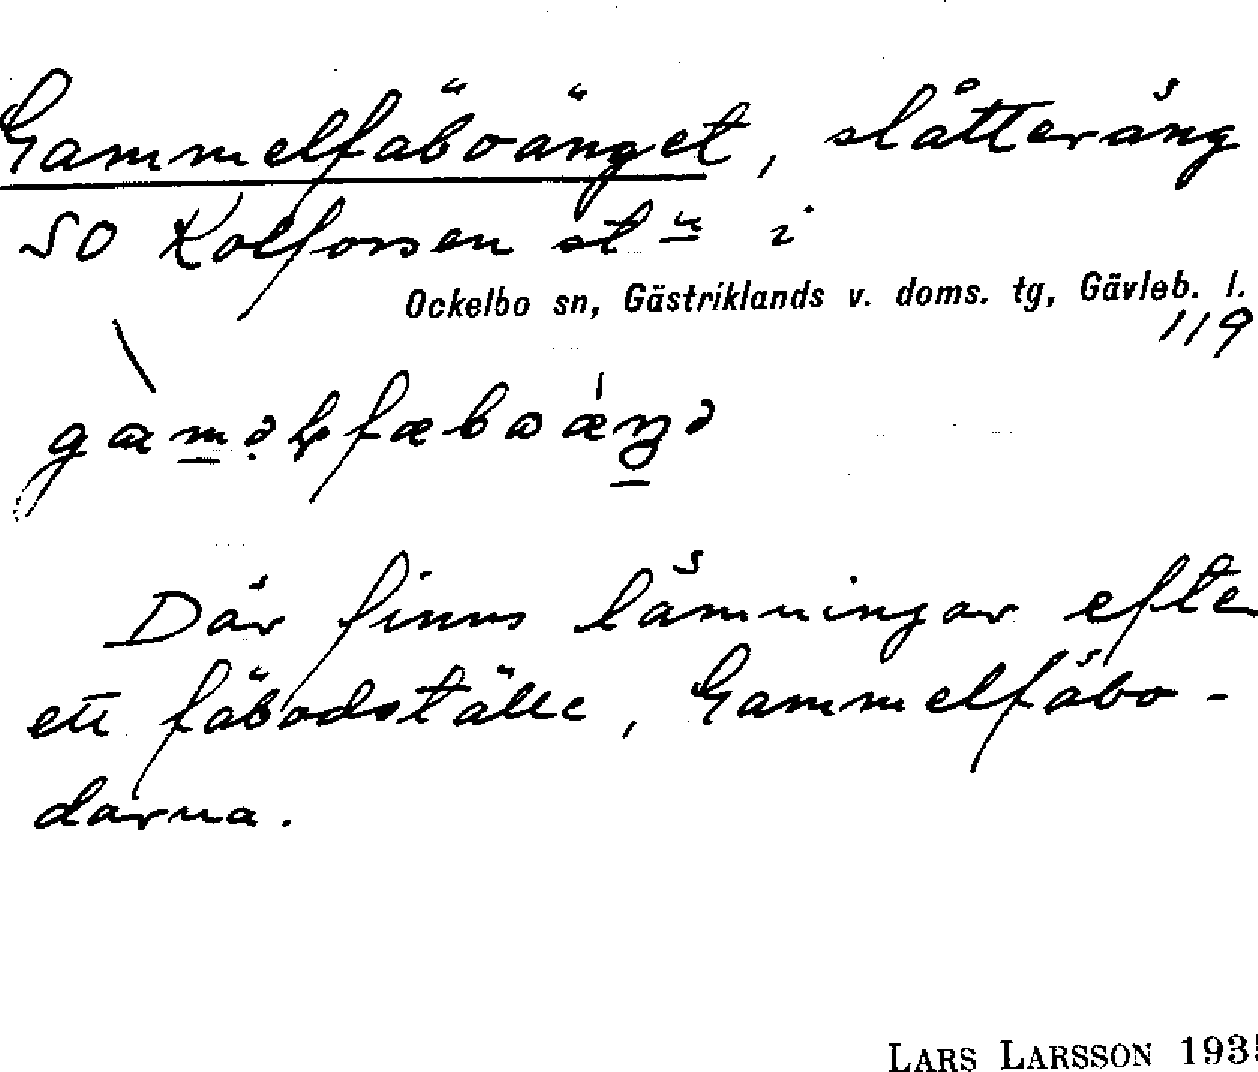 Gammelfäboänget, slåtteräng
SO Kolforsen stn i
Ockelbo sn, Gästriklands v. doms. tg, Gävleb. l.
119
Där finns lämningar efte
ett fäbodställe, Gammelfäbo-
darna.
LARS LARSSON 1935